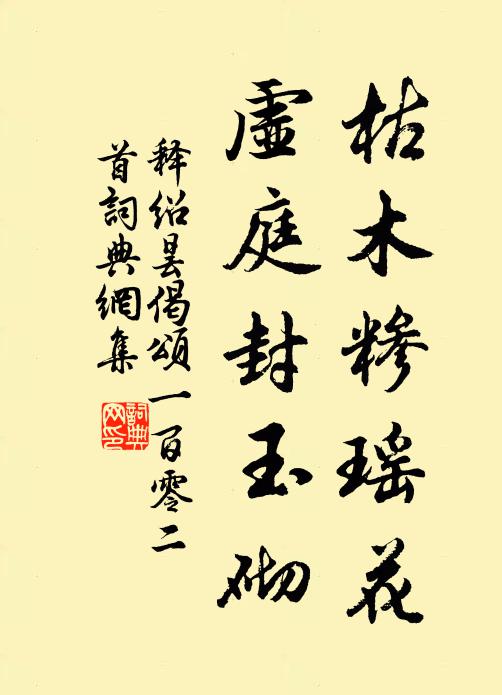 枯木糁瑶花
虚庭封玉砌
释绍昙偈颂一百零二
首詞典網集
詞典網印